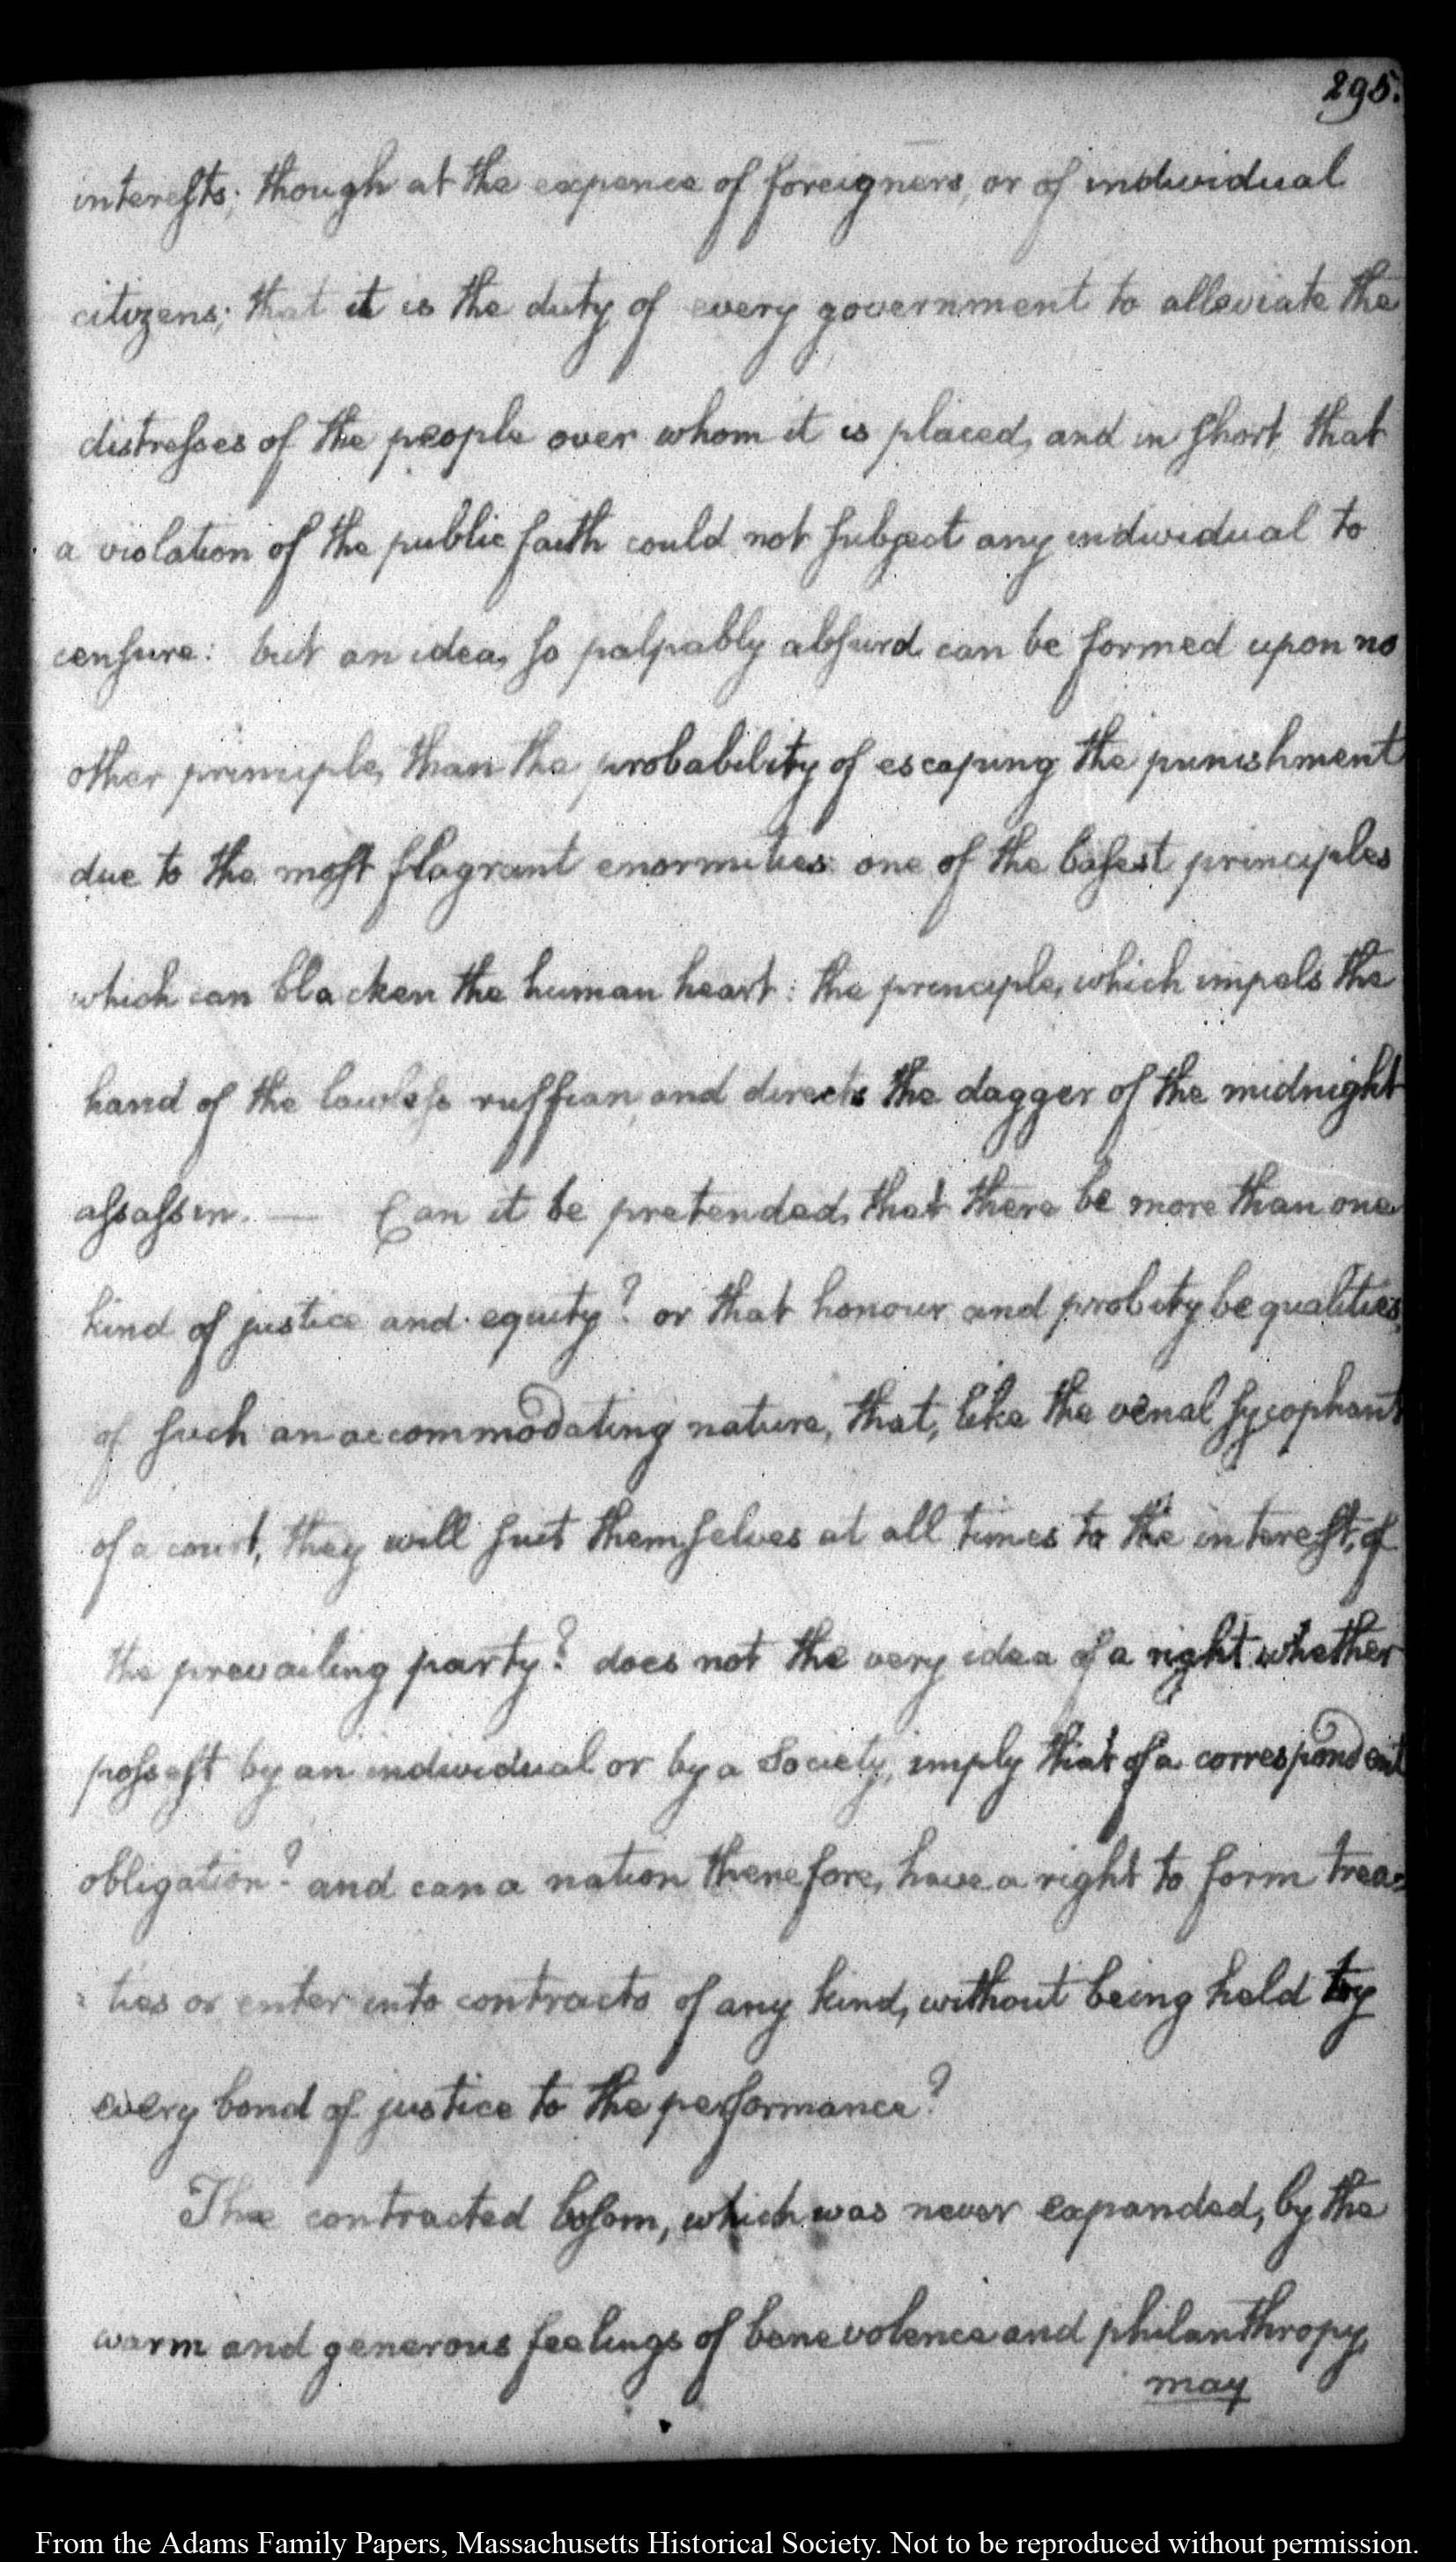 295.
interests; though at the expence of foreigners, or of individual
citizens; that it is the duty of every government to alleviate the
distresses of the people over whom it is placed, and in short, that
a violation of the public faith could not subject any individual to
censure: but an idea, so palpably absurd can be formed upon no
other principle, than the probability of escaping the punishment
due to the most flagrant enormities: one of the basest principles
which can blacken the human heart: the principle, which impels the
hand of the lawless ruffian, and directs the dagger of the midnight
assassin. — Can it be pretended, that there be more than one
kind of justice and equity? or that honour and probity be qualities,
of such an accommodating nature, that, like the venal sycophant
of a court, they will suit themselves at all times to the interest, of
the prevailing party? does not the very idea of a right whether
possest by an individual or by a Society, imply that of a correspondent
obligation? and can a nation therefore, have a right to form trea=
=ties or enter into contracts of any kind, without being held by
every bond of justice to the performance?
The contracted bosom, which was never expanded, by the
warm and generous feelings of benevolence and philanthropy,
may
From the Adams Family Papers, Massachusetts Historical Society. Not to be reproduced without permission.